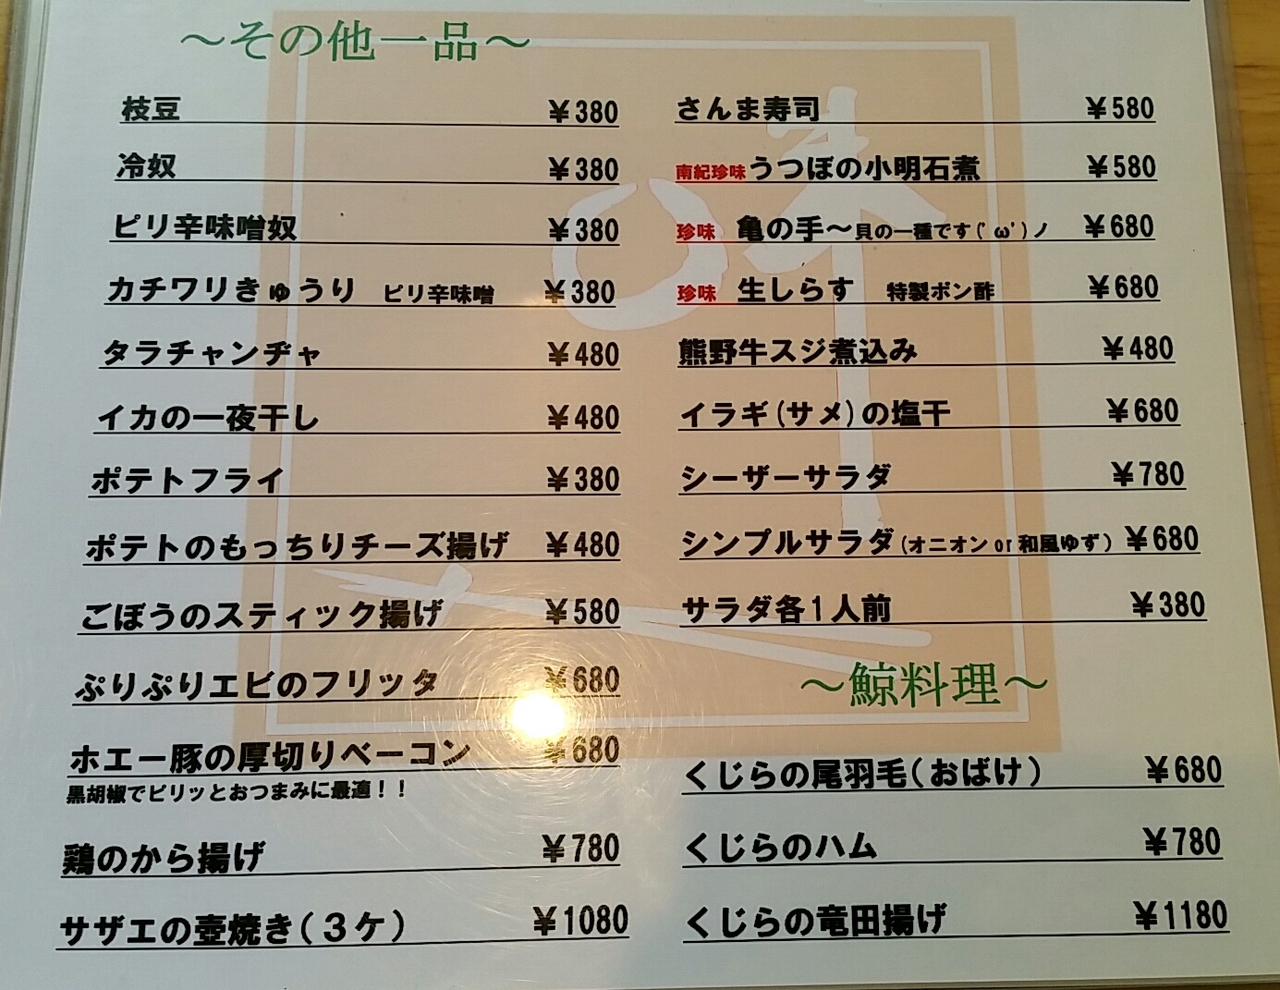 ～その他一品～
枝豆 ¥380
冷奴 ¥380
ピリ辛味噌奴 ¥380
カチワリきゅうり ピリ辛味噌 ¥380
タラチャンヂャ ¥480
イカの一夜干し ¥480
ポテトフライ ¥380
ポテトのもっちりチーズ揚げ ¥480
ごぼうのスティック揚げ ¥580
ぷりぷりエビのフリッタ ¥680
ホエー豚の厚切りベーコン ¥680
黒胡椒でピリッとおつまみに最適！！
鶏のから揚げ ¥780
サザエの壺焼き(３ケ) ¥1080
さんま寿司 ¥580
南紀珍味うつぼの小明石煮 ¥580
珍味 亀の手～貝の一種です(´ω`)ノ ¥680
珍味 生しらす 特製ポン酢 ¥680
熊野牛スジ煮込み ¥480
イラギ(サメ)の塩干 ¥680
シーザーサラダ ¥780
シンプルサラダ(オニオンor和風ゆず) ¥680
サラダ各1人前 ¥380
～鯨料理～
くじらの尾羽毛(おばけ) ¥680
くじらのハム ¥780
くじらの竜田揚げ ¥1180
味